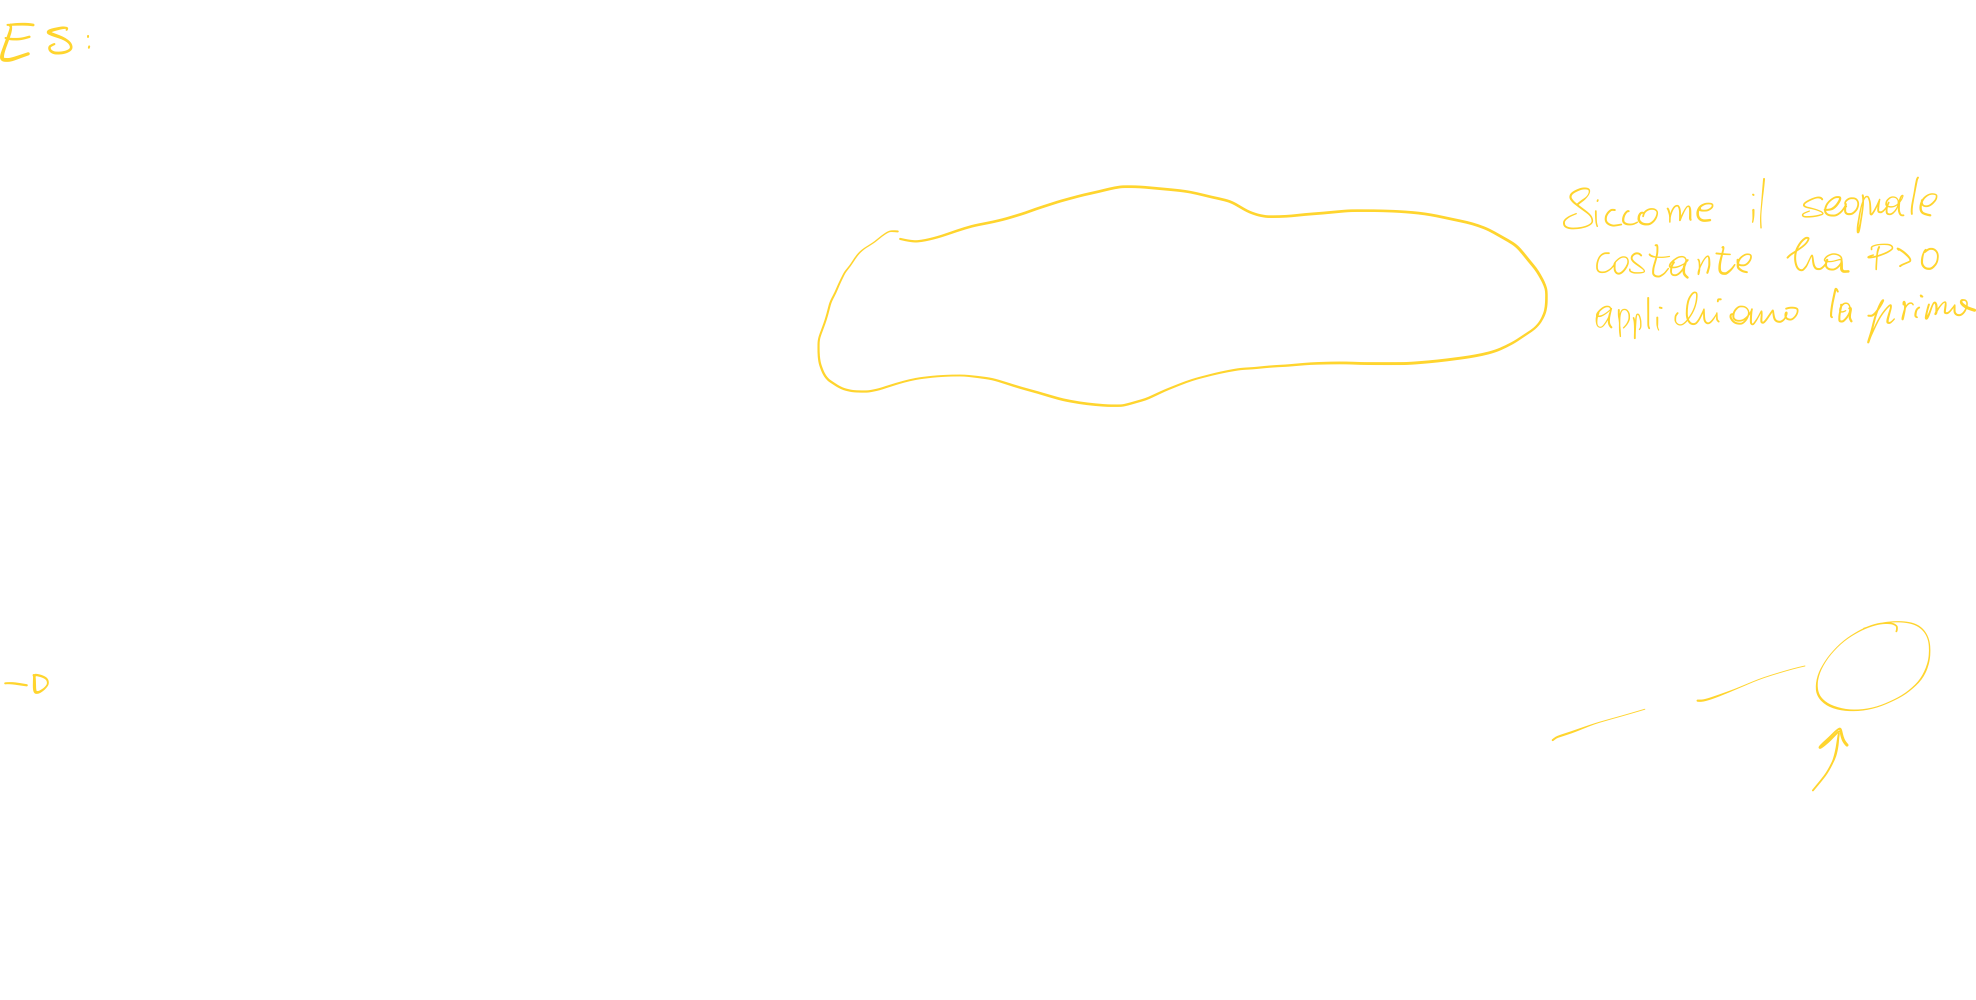 ES:
Siccome il segnale
costante ha P>0
applichiamo la prima